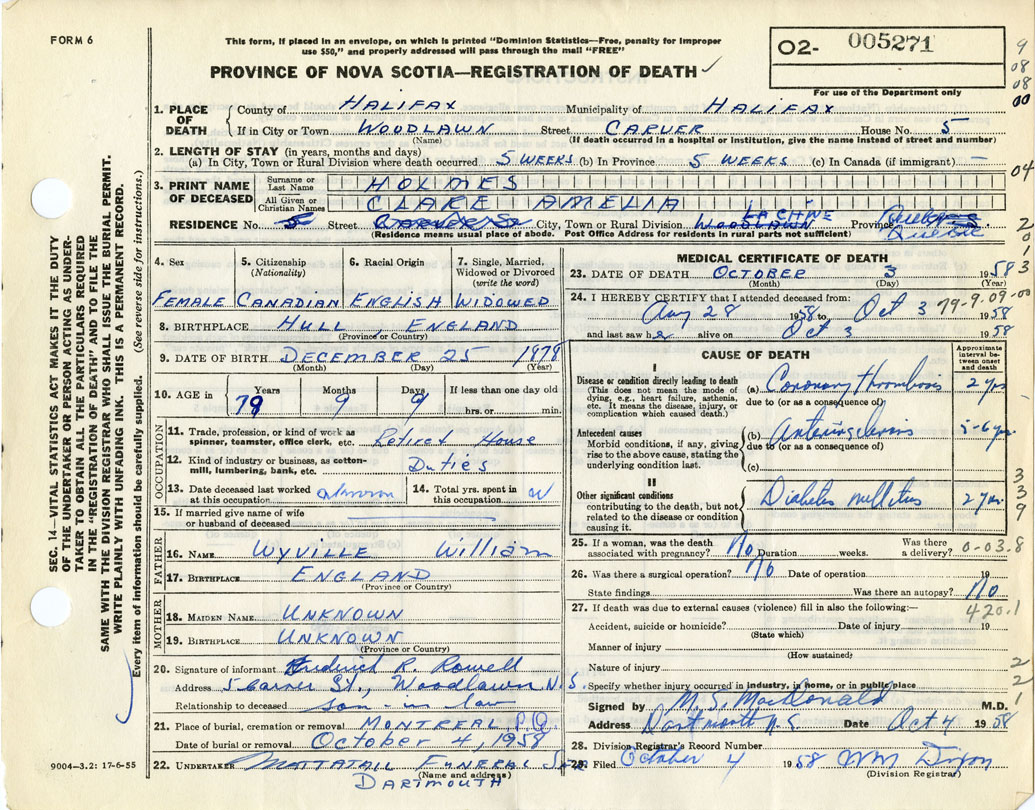 FORM 6
This form, if placed in an envelope, on which is printed "Dominion Statistics—Free, penalty for improper
use $50," and properly addressed will pass through the mail "FREE"
PROVINCE OF NOVA SCOTIA—REGISTRATION OF DEATH ✓
02- 005271
For use of the Department only
9
08
08
00
04
2
3
1. PLACE OF DEATH
County of HALIFAX Municipality of HALIFAX
If in City or Town WOODLAWN Street CARVER House No. 5
(Name) (If death occurred in a hospital or institution, give the name instead of street and number)
2. LENGTH OF STAY (in years, months and days)
(a) In City, Town or Rural Division where death occurred 5 WEEKS (b) In Province 5 WEEKS (c) In Canada (if immigrant) —
3. PRINT NAME OF DECEASED
Surname or Last Name HOLMES
All Given or Christian Names CLARE AMELIA
RESIDENCE No. 5 Street CARVER ST City, Town or Rural Division WOODLAWN LACHINE Province Quebec
(Residence means usual place of abode. Post Office Address for residents in rural parts not sufficient)
4. Sex 5. Citizenship (Nationality) 6. Racial Origin 7. Single, Married, Widowed or Divorced (write the word)
FEMALE CANADIAN ENGLISH WIDOWED
8. BIRTHPLACE HULL, ENGLAND
(Province or Country)
9. DATE OF BIRTH DECEMBER 25 1879
(Month) (Day) (Year)
10. AGE in Years Months Days If less than one day old
79 9 9 hrs. or min.
OCCUPATION
11. Trade, profession, or kind of work as spinner, teamster, office clerk, etc. Retired House
12. Kind of industry or business, as cotton-mill, lumbering, bank, etc. Duties
13. Date deceased last worked at this occupation
14. Total yrs. spent in this occupation
15. If married give name of wife or husband of deceased
FATHER
16. NAME WYVILLE William
17. BIRTHPLACE ENGLAND
(Province or Country)
MOTHER
18. MAIDEN NAME UNKNOWN
19. BIRTHPLACE UNKNOWN
(Province or Country)
20. Signature of informant Frederick R. Rowell
Address 5 Carver St., Woodlawn N.S.
Relationship to deceased son-in law
21. Place of burial, cremation or removal MONTREAL P.Q.
Date of burial or removal October 4, 1958
22. UNDERTAKER MATTATALL FUNERAL
(Name and address)
DARTMOUTH
9004—3.2: 17-6-55
MEDICAL CERTIFICATE OF DEATH
23. DATE OF DEATH OCTOBER 3 1958
(Month) (Day)
24. I HEREBY CERTIFY that I attended deceased from:
Aug 28 1958 to Oct 3 1958
79-9.09-00
and last saw her alive on Oct 3 1958
CAUSE OF DEATH
Approximate interval between onset and death
I
Disease or condition directly leading to death
(This does not mean the mode of dying, e.g., heart failure, asthenia, etc. It means the disease, injury, or complication which caused death.)
(a) Coronary thrombosis 2 yrs
due to (or as a consequence of)
Antecedent causes
Morbid conditions, if any, giving rise to the above cause, stating the underlying condition last.
(b) Arteriosclerosis 5-6 yrs
due to (or as a consequence of)
(c)
II
Other significant conditions
contributing to the death, but not related to the disease or condition causing it.
Diabetes mellitus 2 yrs.
3
3
9
25. If a woman, was the death associated with pregnancy? No Duration weeks. Was there a delivery? 0-03.8
26. Was there a surgical operation? No Date of operation 19
State findings Was there an autopsy? No
27. If death was due to external causes (violence) fill in also the following:—
420.1
Accident, suicide or homicide? Date of injury 19
(State which)
Manner of injury
(How sustained)
Nature of injury
Specify whether injury occurred in industry, in home, or in public place
2
2
1
Signed by M. S. MacDonald M.D.
Address Dartmouth N.S. Date Oct 4 1958
28. Division Registrar's Record Number
29. Filed October 4 1958 WM Dixon
(Division Registrar)
SEC. 14—VITAL STATISTICS ACT MAKES IT THE DUTY
OF THE UNDERTAKER OR PERSON ACTING AS UNDER-
TAKER TO OBTAIN ALL THE PARTICULARS REQUIRED
IN THE "REGISTRATION OF DEATH" AND TO FILE THE
SAME WITH THE DIVISION REGISTRAR WHO SHALL ISSUE THE BURIAL PERMIT.
WRITE PLAINLY WITH UNFADING INK. THIS IS A PERMANENT RECORD.
Every item of information should be carefully supplied. (See reverse side for instructions.)